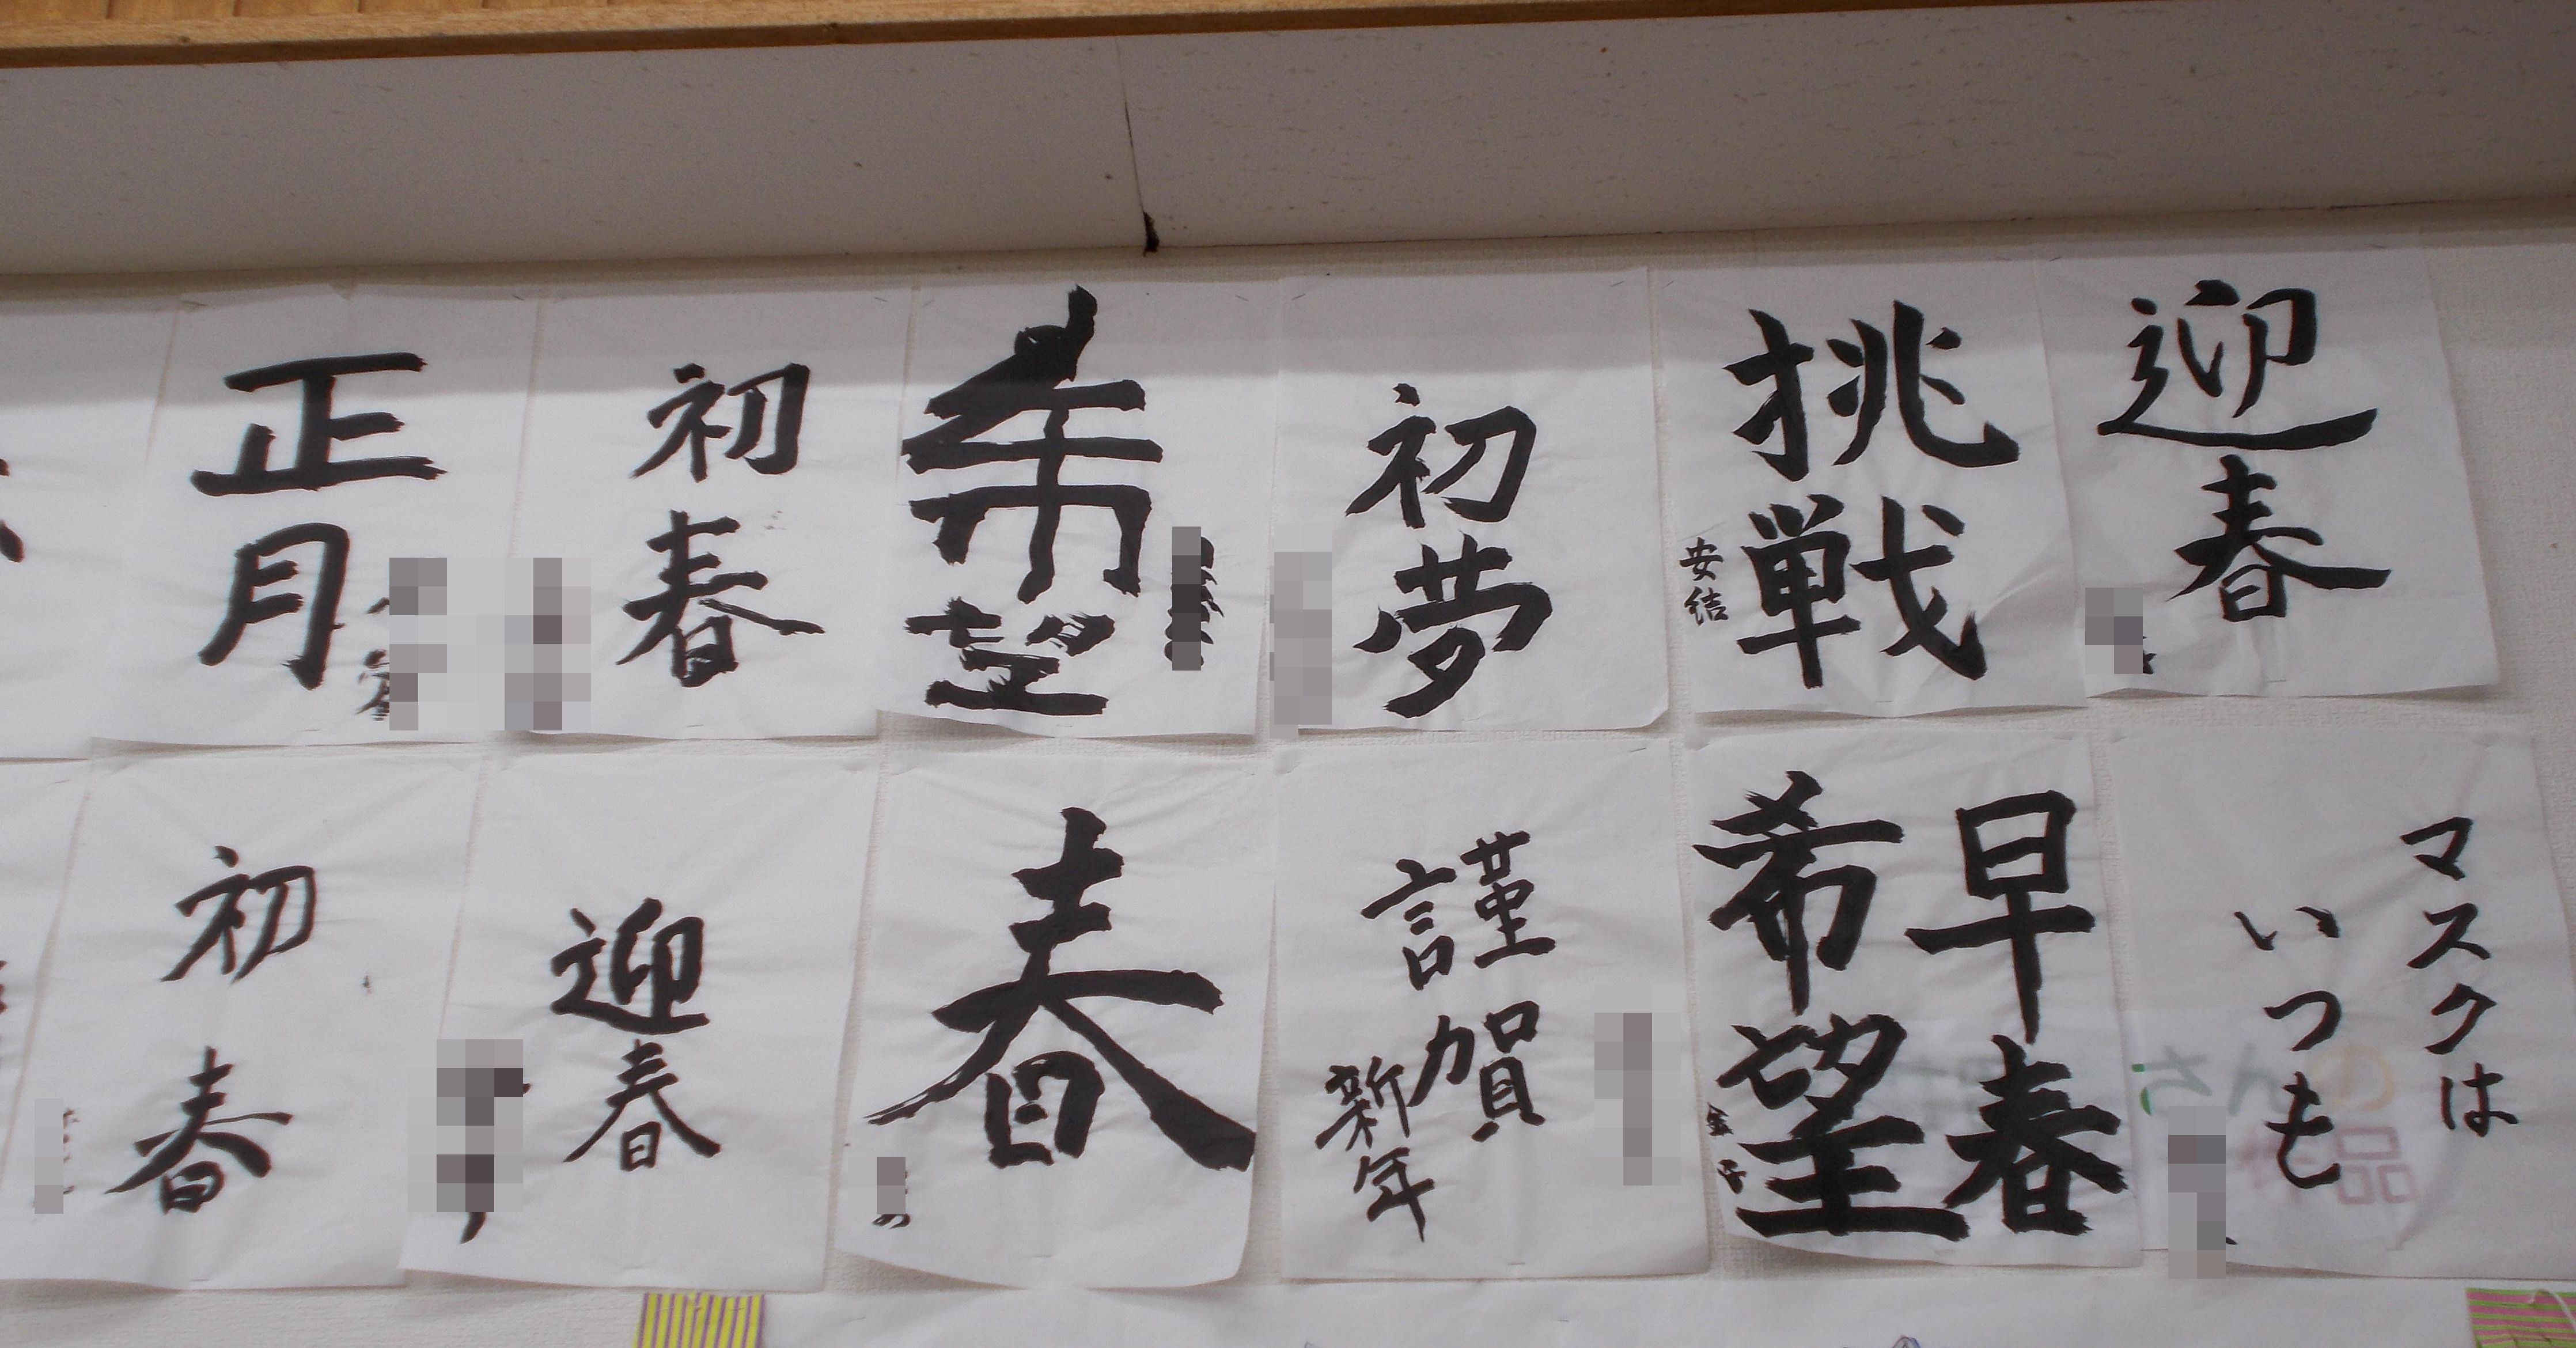 迎春
挑戦
安結
初夢
希望
初春
正月
マスクは
いつも
さんの
作品
早春
希望
金子
謹賀
新年
春
の
迎春
初春